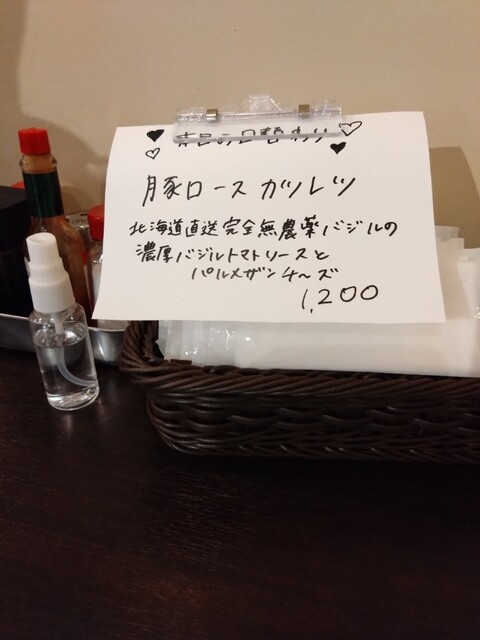 本日の日替わり
豚ロースカツレツ
北海道直送完全無農薬バジルの
濃厚バジルトマトソースと
パルメザンチーズ
1,200